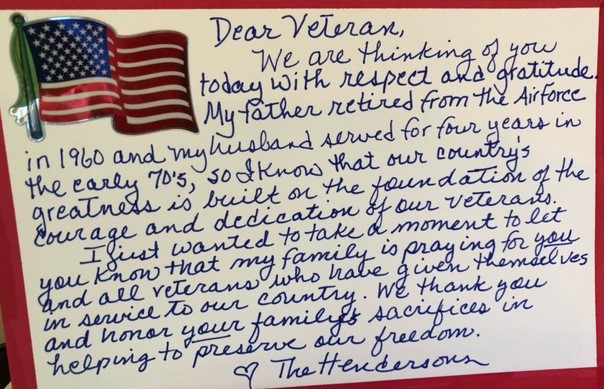 Dear Veteran,
We are thinking of you
today with respect and gratitude.
My father retired from the Airforce
in 1960 and my husband served for four years in
the early 70's, so I know that our country's
greatness is built on the foundation of the
courage and dedication of our veterans.
I just wanted to take a moment to let
you know that my family is praying for you
and all veterans who have given themselves
in service to our country. We thank you
and honor your family's sacrifices in
helping to preserve our freedom.
♡ The Hendersons